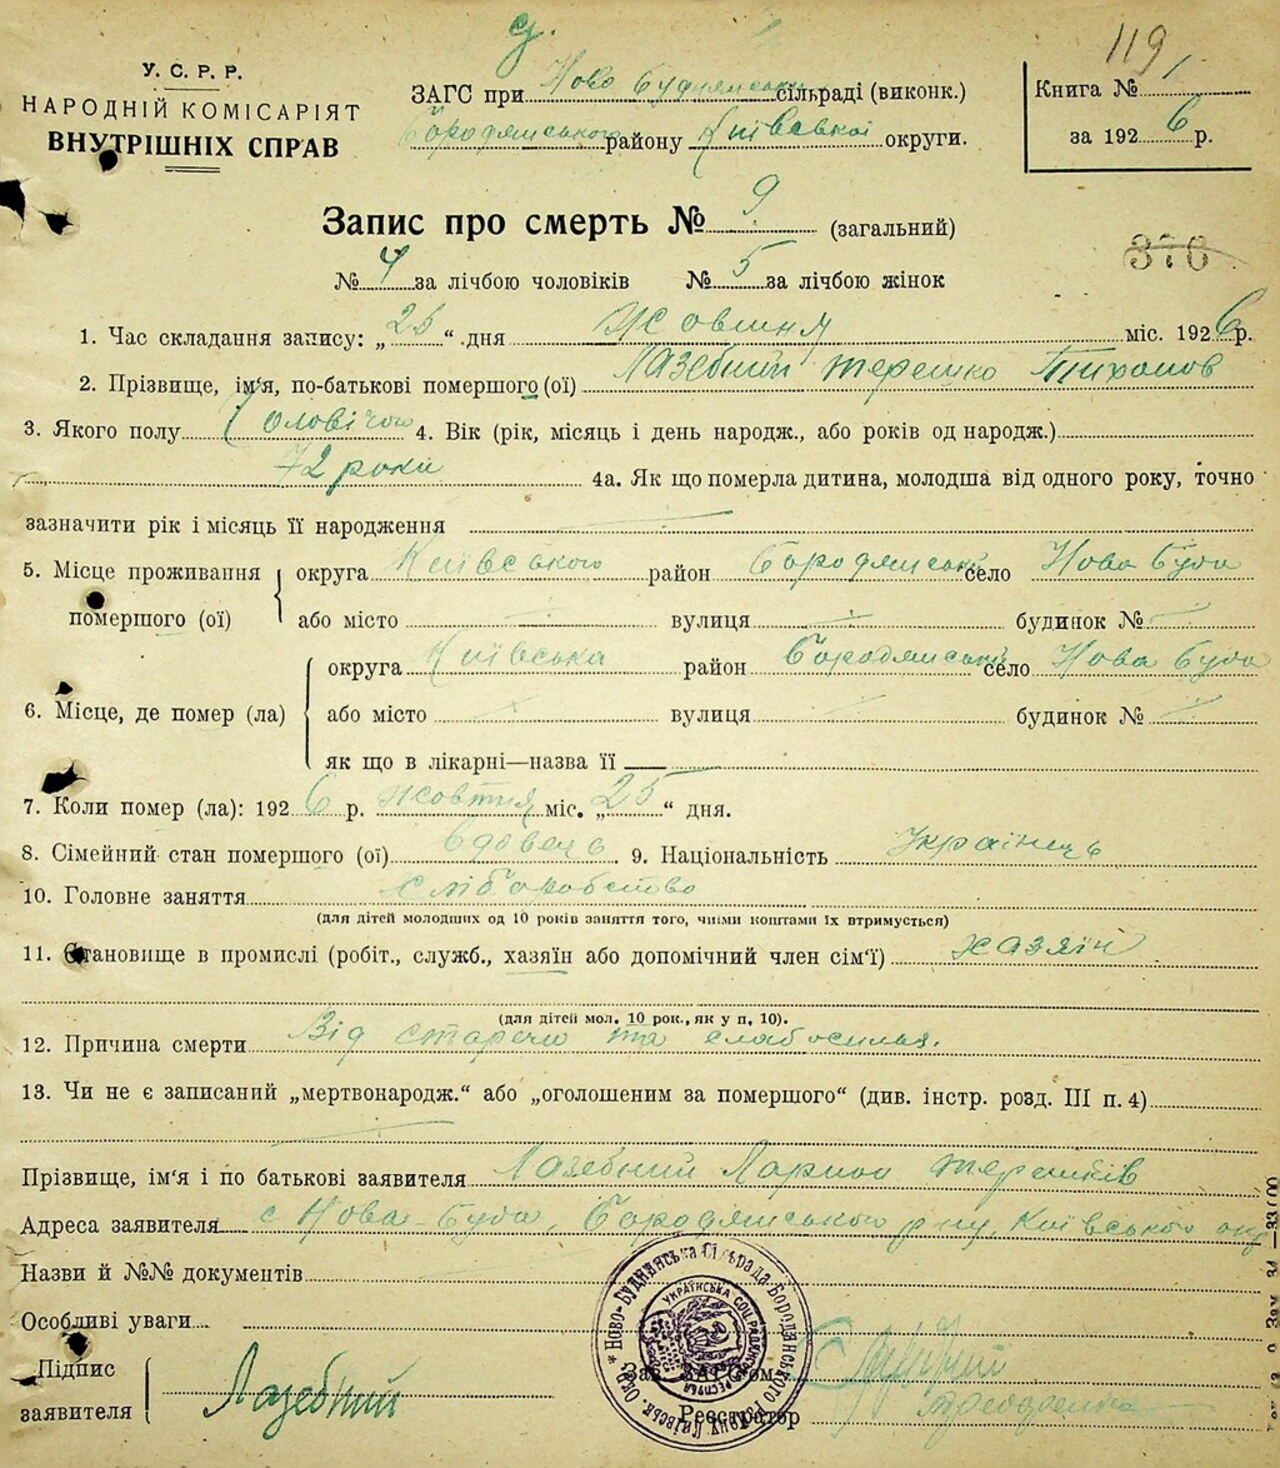 119
У. С. Р. Р.
НАРОДНІЙ КОМІСАРІЯТ
ВНУТРІШНІХ СПРАВ
ЗАГС при Ново Буднянськ сільраді (виконк.)
Бородянського району Київської округи.
Книга №
за 1926 р.
Запис про смерть № 9 (загальний)
370
№ 4 за лічбою чоловіків № 5 за лічбою жінок
1. Час складання запису: „25“ дня Жовтня міс. 1926 р.
2. Прізвище, ім'я, по-батькові помершого (ої) Лазебний Терешко Тихонов
3. Якого полу Чоловічого 4. Вік (рік, місяць і день народж., або років од народж.)
72 роки 4а. Як що померла дитина, молодша від одного року, точно
зазначити рік і місяць її народження
5. Місце проживання помершого (ої) округа Київського район Бородянськ село Нова Буда
або місто вулиця будинок №
6. Місце, де помер (ла) округа Київська район Бородянськ село Нова Буда
або місто вулиця будинок №
як що в лікарні—назва її
7. Коли помер (ла): 1926 р. жовтня міс. „25“ дня.
8. Сімейний стан помершого (ої) вдовець 9. Національність Українець
10. Головне заняття хліборобство
(для дітей молодших од 10 років заняття того, чиїми коштами їх втримується)
11. Становище в промислі (робіт., служб., хазяїн або допомічний член сім'ї) хазяїн
(для дітей мол. 10 рок., як у п, 10).
12. Причина смерти Від старечи та слабосилья.
13. Чи не є записаний „мертвонародж.“ або „оголошеним за помершого“ (див. інстр. розд. III п. 4)
Прізвище, ім'я і по батькові заявителя Лазебний Ларион Терешків
Адреса заявителя с Нова-Буда, Бородянського р ну, Київського окр
Назви й №№ документів
Особливі уваги
Підпис заявителя Лазебний
Зав. ЗАГС'ом
Реєстратор
Ново-Буднянська Сільрада Бородянського Району Київськ. Окр.
УКРАЇНСЬКА СОЦ. РАДЯНСЬК. РЕСПУБ.